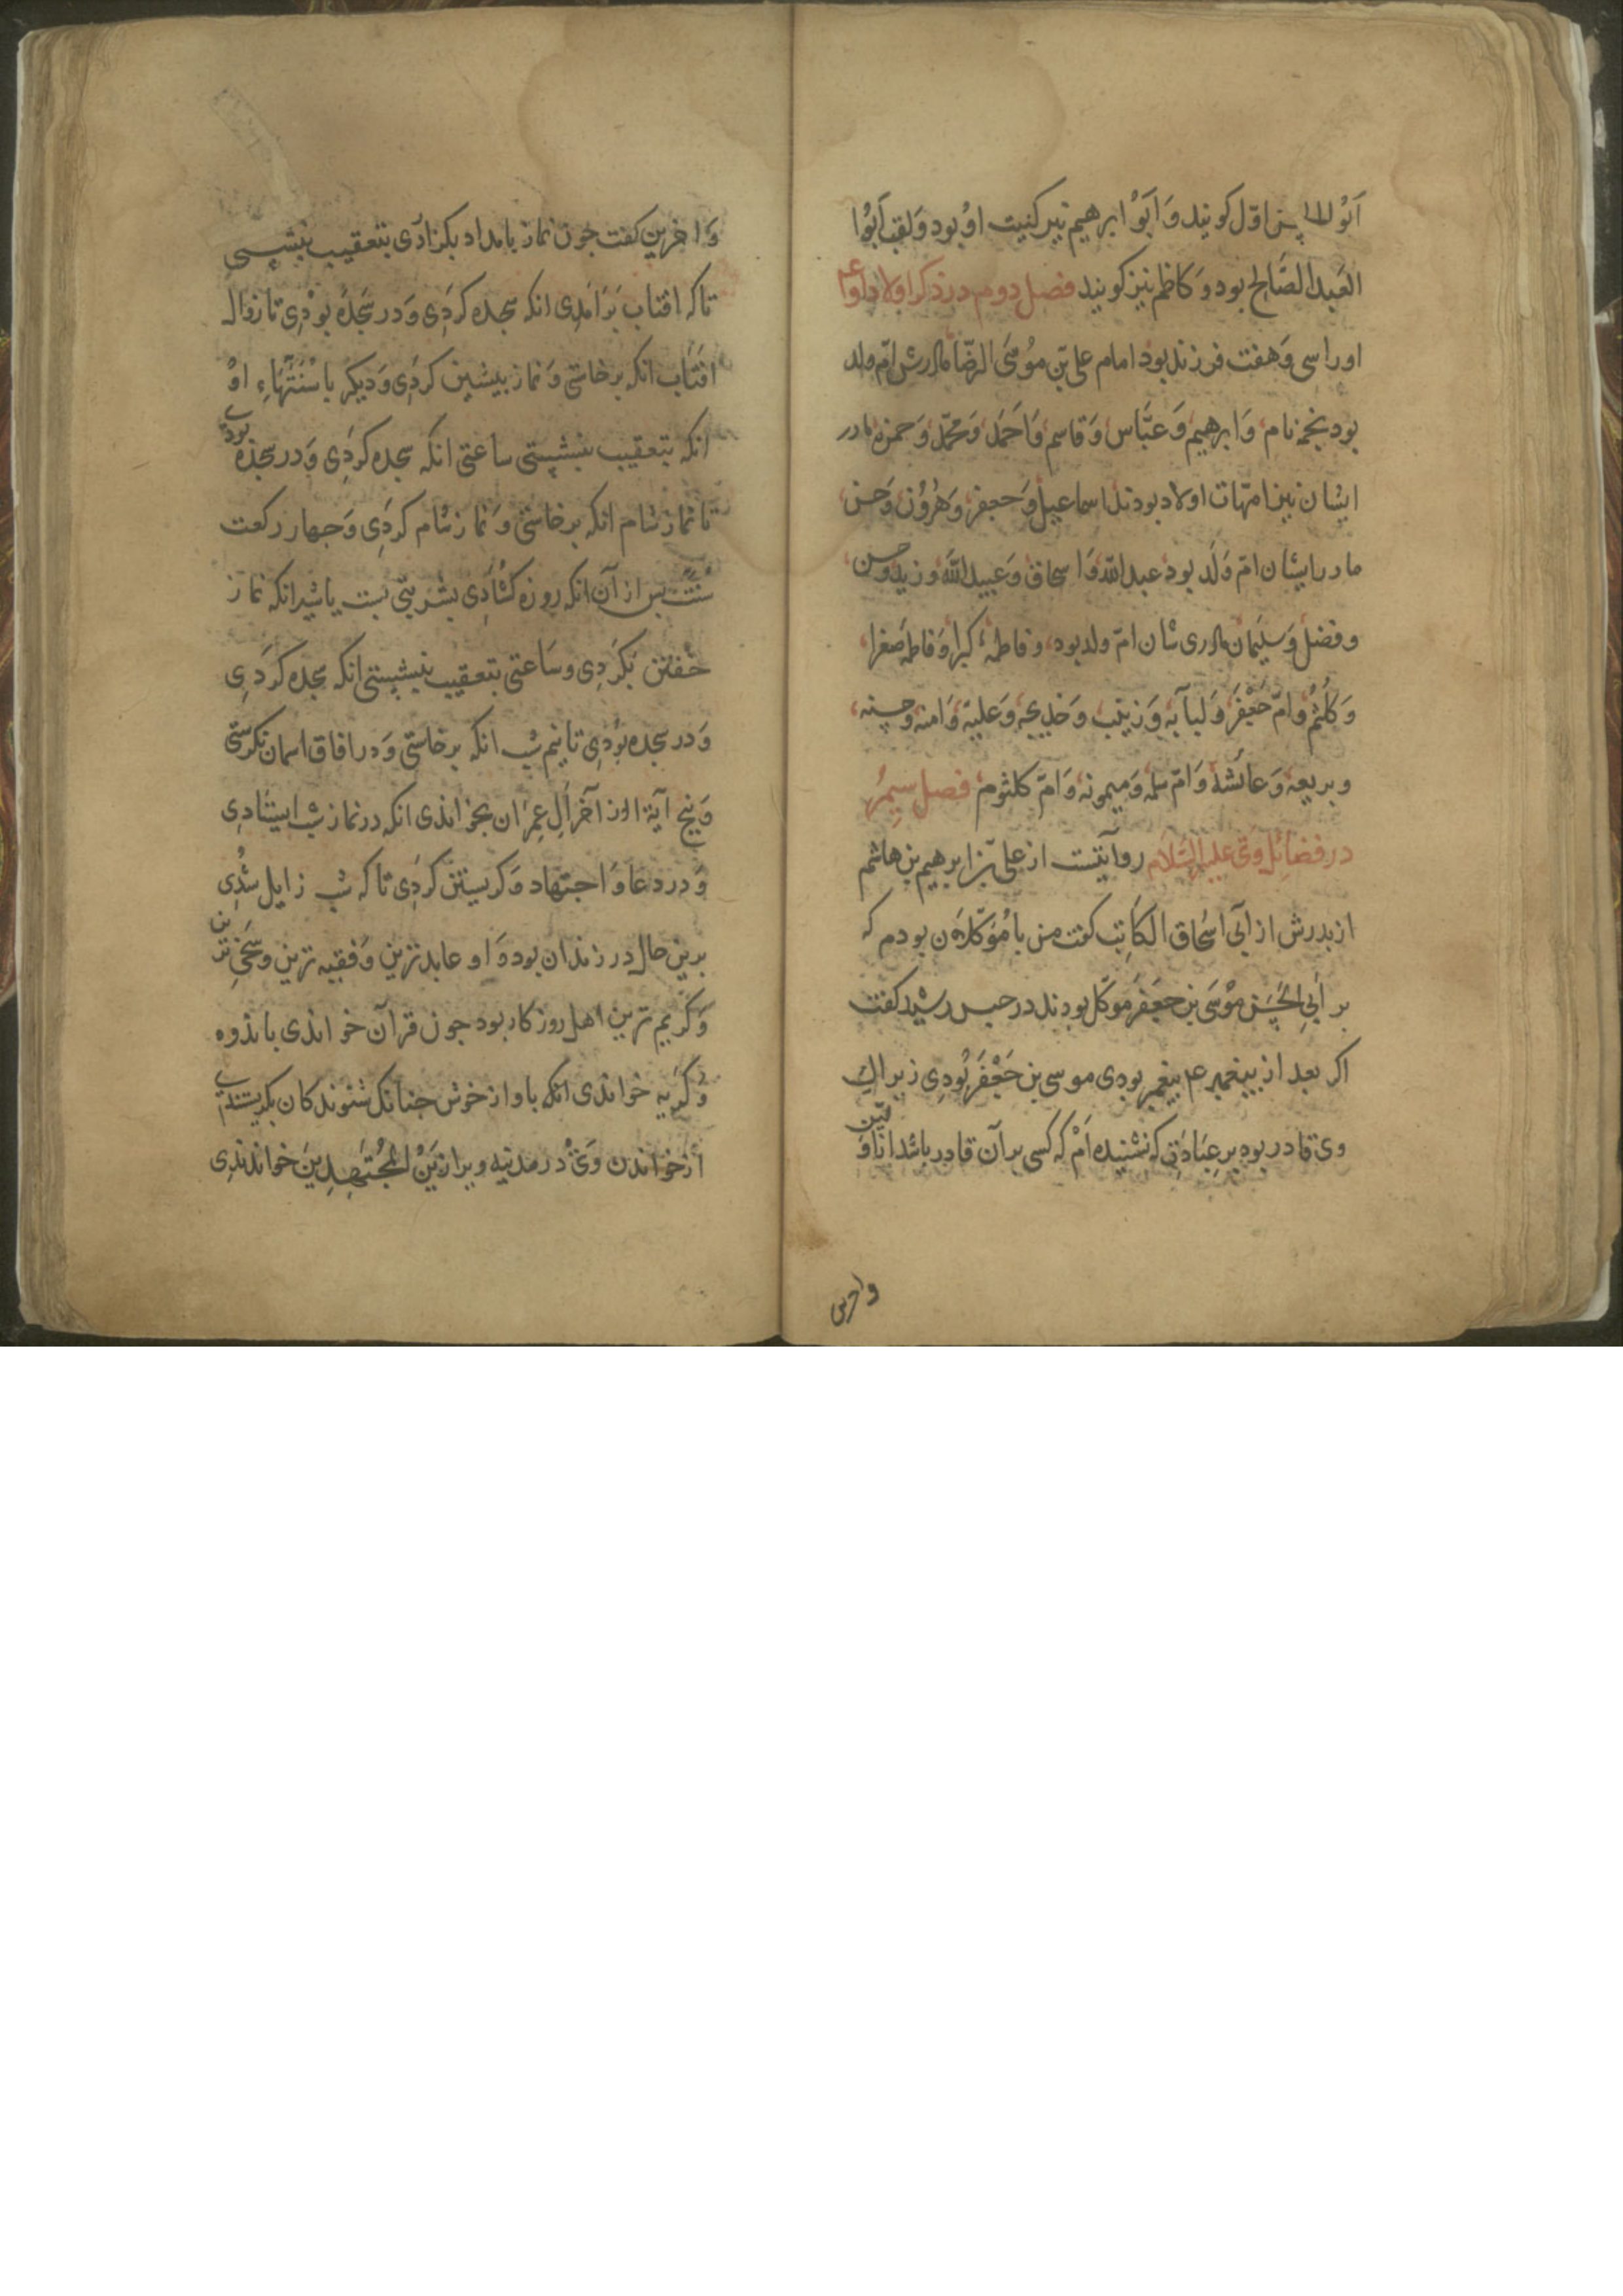 اول كويند وَ اَبَوْ ابرهيم نيز كنيت اوُ بود وَ لقب اَبَوُا
العَبد الصَّالِح بود وَ كاظم نيز كويند فصل دوم در ذكر اولاد او
او را سى وَ هفت فرزند بود امام على بن مُوسَى الرضَا مادرش امّ ولد
بود نجمه نام وَ ابرهيم وَ عَبَّاس وَ قاسم وَ اَحَمد وَ محمّد وَ حمزه مادر
ايشان نيز امهات اولاد بودند اسماعيل وَ جعفر وَ هرُوُن وَ حسن
مادر ايشان امّ وَلَد بود عبد الله وَ اسحاق وَ عبيد الله و زيد و حسن
و فضل وَ سليمَان مادرى شان امّ ولد بود و فاطمهٔ كبرا وَ فاطمه صغرا
وَ كُلثُمُ وَ امّ جَعْفَر وَ لبابه وَ زينب وَ خديجه وَ علية وَ امنه و حسنه
و بريعه وَ عائشه وَ امّ سلمه وَ ميمونه وَ امّ كلثوم فصل سيم
در فضائِل وَى عليه السَّلام روايتست از على بن ابرهيم بن هاشم
از بدرش از ابى اسحاق الكَاتِب كفت من با مُؤكلان بودم كه
بر ابى الحسَن موْسَى بن جعَفر موَكّل بودند در حبس رشيد كفت
اكر بعد از بيغمبر عم بيغمبر بودى موسى بن جَعْفَر بُودِى زيراك
وى قادر بود بر عِبَادَتى كه نشنيده اَمْ كه كسى بر آن قادر باشد
واخرين
وَ اخرين كفت جون نماز بامداد بكزاردى بتعقيب بنشستى
تا كه افتاب بَرَامَدِى انكه سجده كردَى وَ در سَجده بوْدِى تا زوال
افتَاب انكه برخاستى وَ نماز بيشين كردَى وَ ديكر با سُنَتْهَاءِ اوْ
انكه بتعقيب بنشستى ساعتى انكه سجده كردَى وَ در سجده بودى
تا نماز شام انكه برخاستى وَ نماز شام كردَى وَ جهار ركعت
سُنَّت بس از آن انكه روزه كشُادَى بشربتى بست يا شير انكه نماز
خُفتن بكردَى و سَاعتى بتعقيب بنشستى انكه سجده كردَى
وَ در سجده بُودِى تا نيم شب انكه برخاستى وَ در افاق اسمان نكرستى
وَ بنج آيَة از آخر اَلِ عِمرَان بخواندى انكه در نماز شب ايستادى
وَ در دعا وَ اجتهاد وَ كريستن كردَى تا كه شب زايل شُدى
برين حال در زندان بود وَ او عابد ترين وَ فقيه ترين و سَخى ترين
وَ كَريم ترين اهل روزكار بود جون قرآن خواندى با ندوه
وَ كَريه خواندى انكه باواز خوش جنانك شنوندكان بكريستندى
از خواندن وَى در مدنيه ويرا زَيْن المُجتهِدِينَ خواندندِى